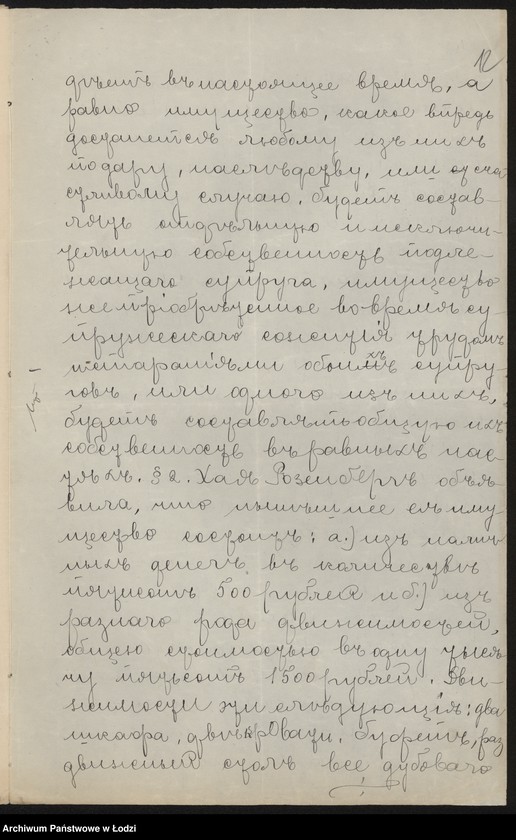 12
дѣетъ въ настоящее время, а
равно имущество, какое впредь
достанется любому изъ нихъ
по дару, наслѣдству, или по сча-
стливому случаю, будетъ состав-
лять отдѣльную и исключи-
тельную собственность подле-
жащаго супруга, имущество
же пріобрѣтенное во время су-
пружескаго сожитія трудомъ
и стараніями обоихъ супру-
говъ, или одного изъ нихъ,
будетъ составлять общую ихъ
собственность въ равныхъ час-
тяхъ. § 2. Хая Розенбергъ объя-
вила, что нынѣшнее ея иму-
щество состоитъ: а.) изъ налич-
ныхъ денегъ въ количествѣ
пятисотъ 500 рублей и б.) изъ
разнаго рода движимостей,
общею стоимостью въ одну тыся-
чу пятьсотъ 1500 рублей. Дви-
жимости эти слѣдующія: два
шкафа, двѣ кровати, буфетъ, раз
движной столъ все дубоваго
Archiwum Państwowe w Łodzi